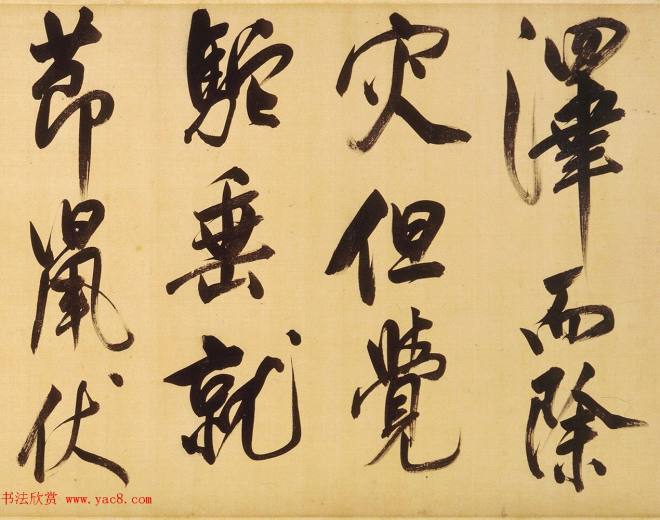 澤而除
灾但覺
駝垂就
節鼠伏
书法欣赏 www.yac8.com